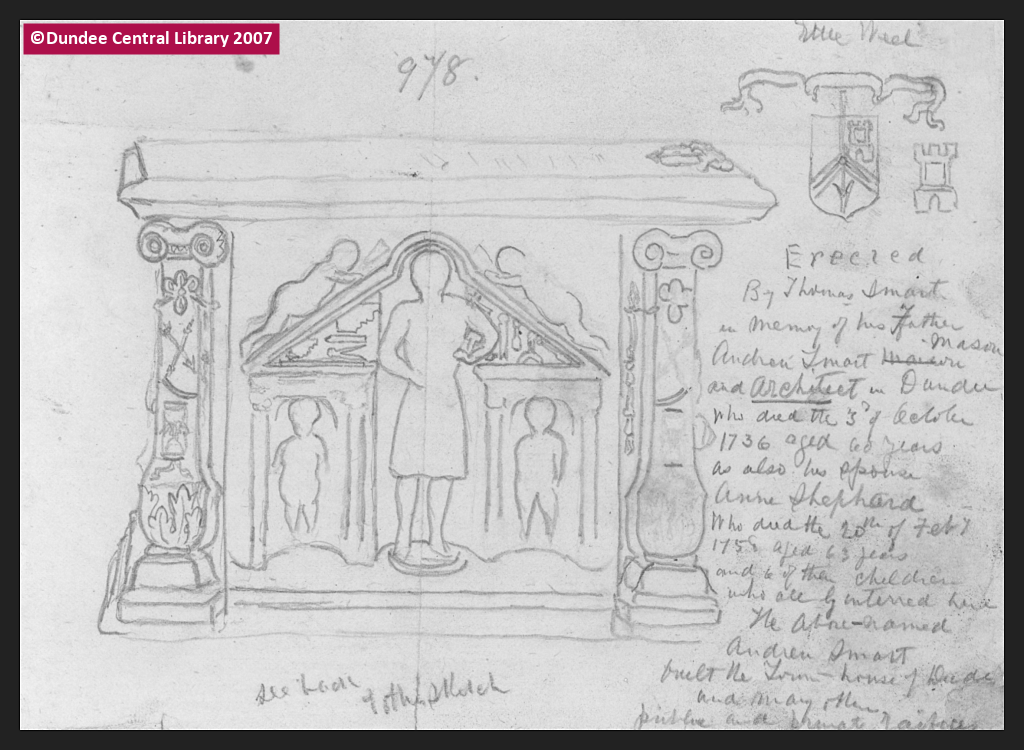 ©Dundee Central Library 2007
978.
Erected
By Thomas Smart
in memory of his Father
Andrew Smart Mason
and Architect in Dundee
Who died the 3d of October
1736 aged 60 years
as also his spouse
Anne Shephard
Who died the 20th of Feby
aged 63 years
and 6 of their children
who all ly interred here
The Above-named
Andrew Smart
built the Town-house of Dundee
and many other
public and private
see back
of other sketch